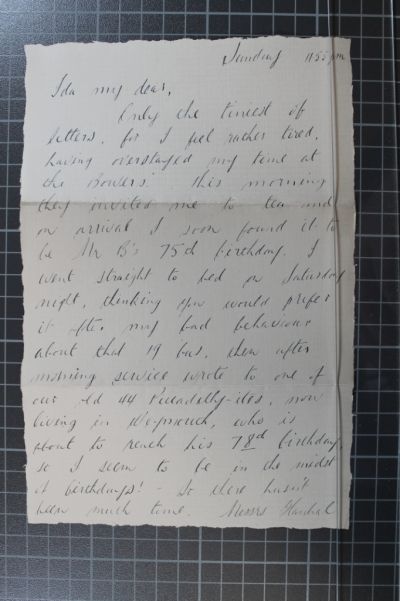 Sunday 11.55 pm
Ida my dear,
Only the tiniest of
letters, for I feel rather tired,
having overstayed my time at
the Bowers'. This morning
they invited me to tea and
on arrival I soon found it to
be Mr B's 75th birthday. I
went straight to bed on Saturday
night, thinking you would prefer
it after my bad behaviour
about that 19 bus, then after
morning service wrote to one of
our old 44 Piccadilly-ites, now
living in, who is
about to reach his 78th birthday,
so I seem to be in the midst
of birthdays! - So there hasn't
been much time. Messrs